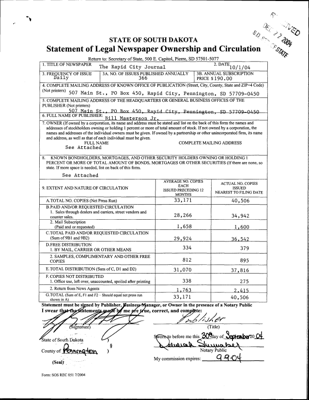 DEC 17 2004
STATE OF SOUTH DAKOTA
Statement of Legal Newspaper Ownership and Circulation
Return to: Secretary of State, 500 E. Capitol, Pierre, SD 57501-5077
1. TITLE OF NEWSPAPER
The Rapid City Journal
2. DATE
10/1/04
3. FREQUENCY OF ISSUE
Daily
3A. NO. OF ISSUES PUBLISHED ANNUALLY
366
3B. ANNUAL SUBSCRIPTION
PRICE $190.00
4. COMPLETE MAILING ADDRESS OF KNOWN OFFICE OF PUBLICATION (Street, City, County, State and ZIP+4 Code)
(Not printers) 507 Main St., PO Box 450, Rapid City, Pennington, SD 57709-0450
5. COMPLETE MAILING ADDRESS OF THE HEADQUARTERS OR GENERAL BUSINESS OFFICES OF THE
PUBLISHER (Not printers)
507 Main St., PO Box 450, Rapid City, Pennington, SD 57709-0450
6. FULL NAME OF PUBLISHER: Bill Masterson Jr.
7. OWNER (If owned by a corporation, its name and address must be stated and also
FULL NAME
COMPLETE MAILING ADDRESS
See Attached
8. KNOWN BONDHOLDERS, MORTGAGES, AND OTHER SECURITY HOLDERS OWNING OR HOLDING 1
PERCENT OR MORE OF TOTAL AMOUNT OF BONDS, MORTGAGES OR OTHER SECURITIES (If there are none, so
state. If more space is needed, list on back of this form).
See Attached
9. EXTENT AND NATURE OF CIRCULATION
AVERAGE NO. COPIES
EACH
ISSUED PRECEDING 12
MONTHS
ACTUAL NO. COPIES
ISSUED
NEAREST TO FILING DATE
A. TOTAL NO. COPIES (Net Press Run)
33,171
40,506
B. PAID AND/OR REQUESTED CIRCULATION
1. Sales through dealers and carriers, street vendors and
counter sales.
28,266
34,942
2. Mail Subscription
(Paid and or requested)
1,658
1,600
C. TOTAL PAID AND/OR REQUESTED CIRCULATION
(Sum of 9B1 and 9B2)
29,924
36,542
D. FREE DISTRIBUTION
1. BY MAIL, CARRIER OR OTHER MEANS
334
379
2. SAMPLES, COMPLIMENTARY AND OTHER FREE
COPIES
812
895
E. TOTAL DISTRIBUTION (Sum of C, D1 and D2)
31,070
37,816
F. COPIES NOT DISTRIBUTED
1. Office use, left over, unaccounted, spoiled after printing
338
275
2. Return from News Agents
1,763
2,415
G. TOTAL (Sum of E, F1 and F2 - Should equal net press run
shown in A)
33,171
40,506
Statement must be signed by Publisher, Business Manager, or Owner in the presence of a Notary Public
I swear that the statements made by me are true, correct, and complete:
Publisher
(Signature)
(Title)
State of South Dakota
County of Pennington
Sworn to before me this 30th day of September 04
Notary Public
(Seal)
My commission expires:
Form: SOS REC 051 7/2004